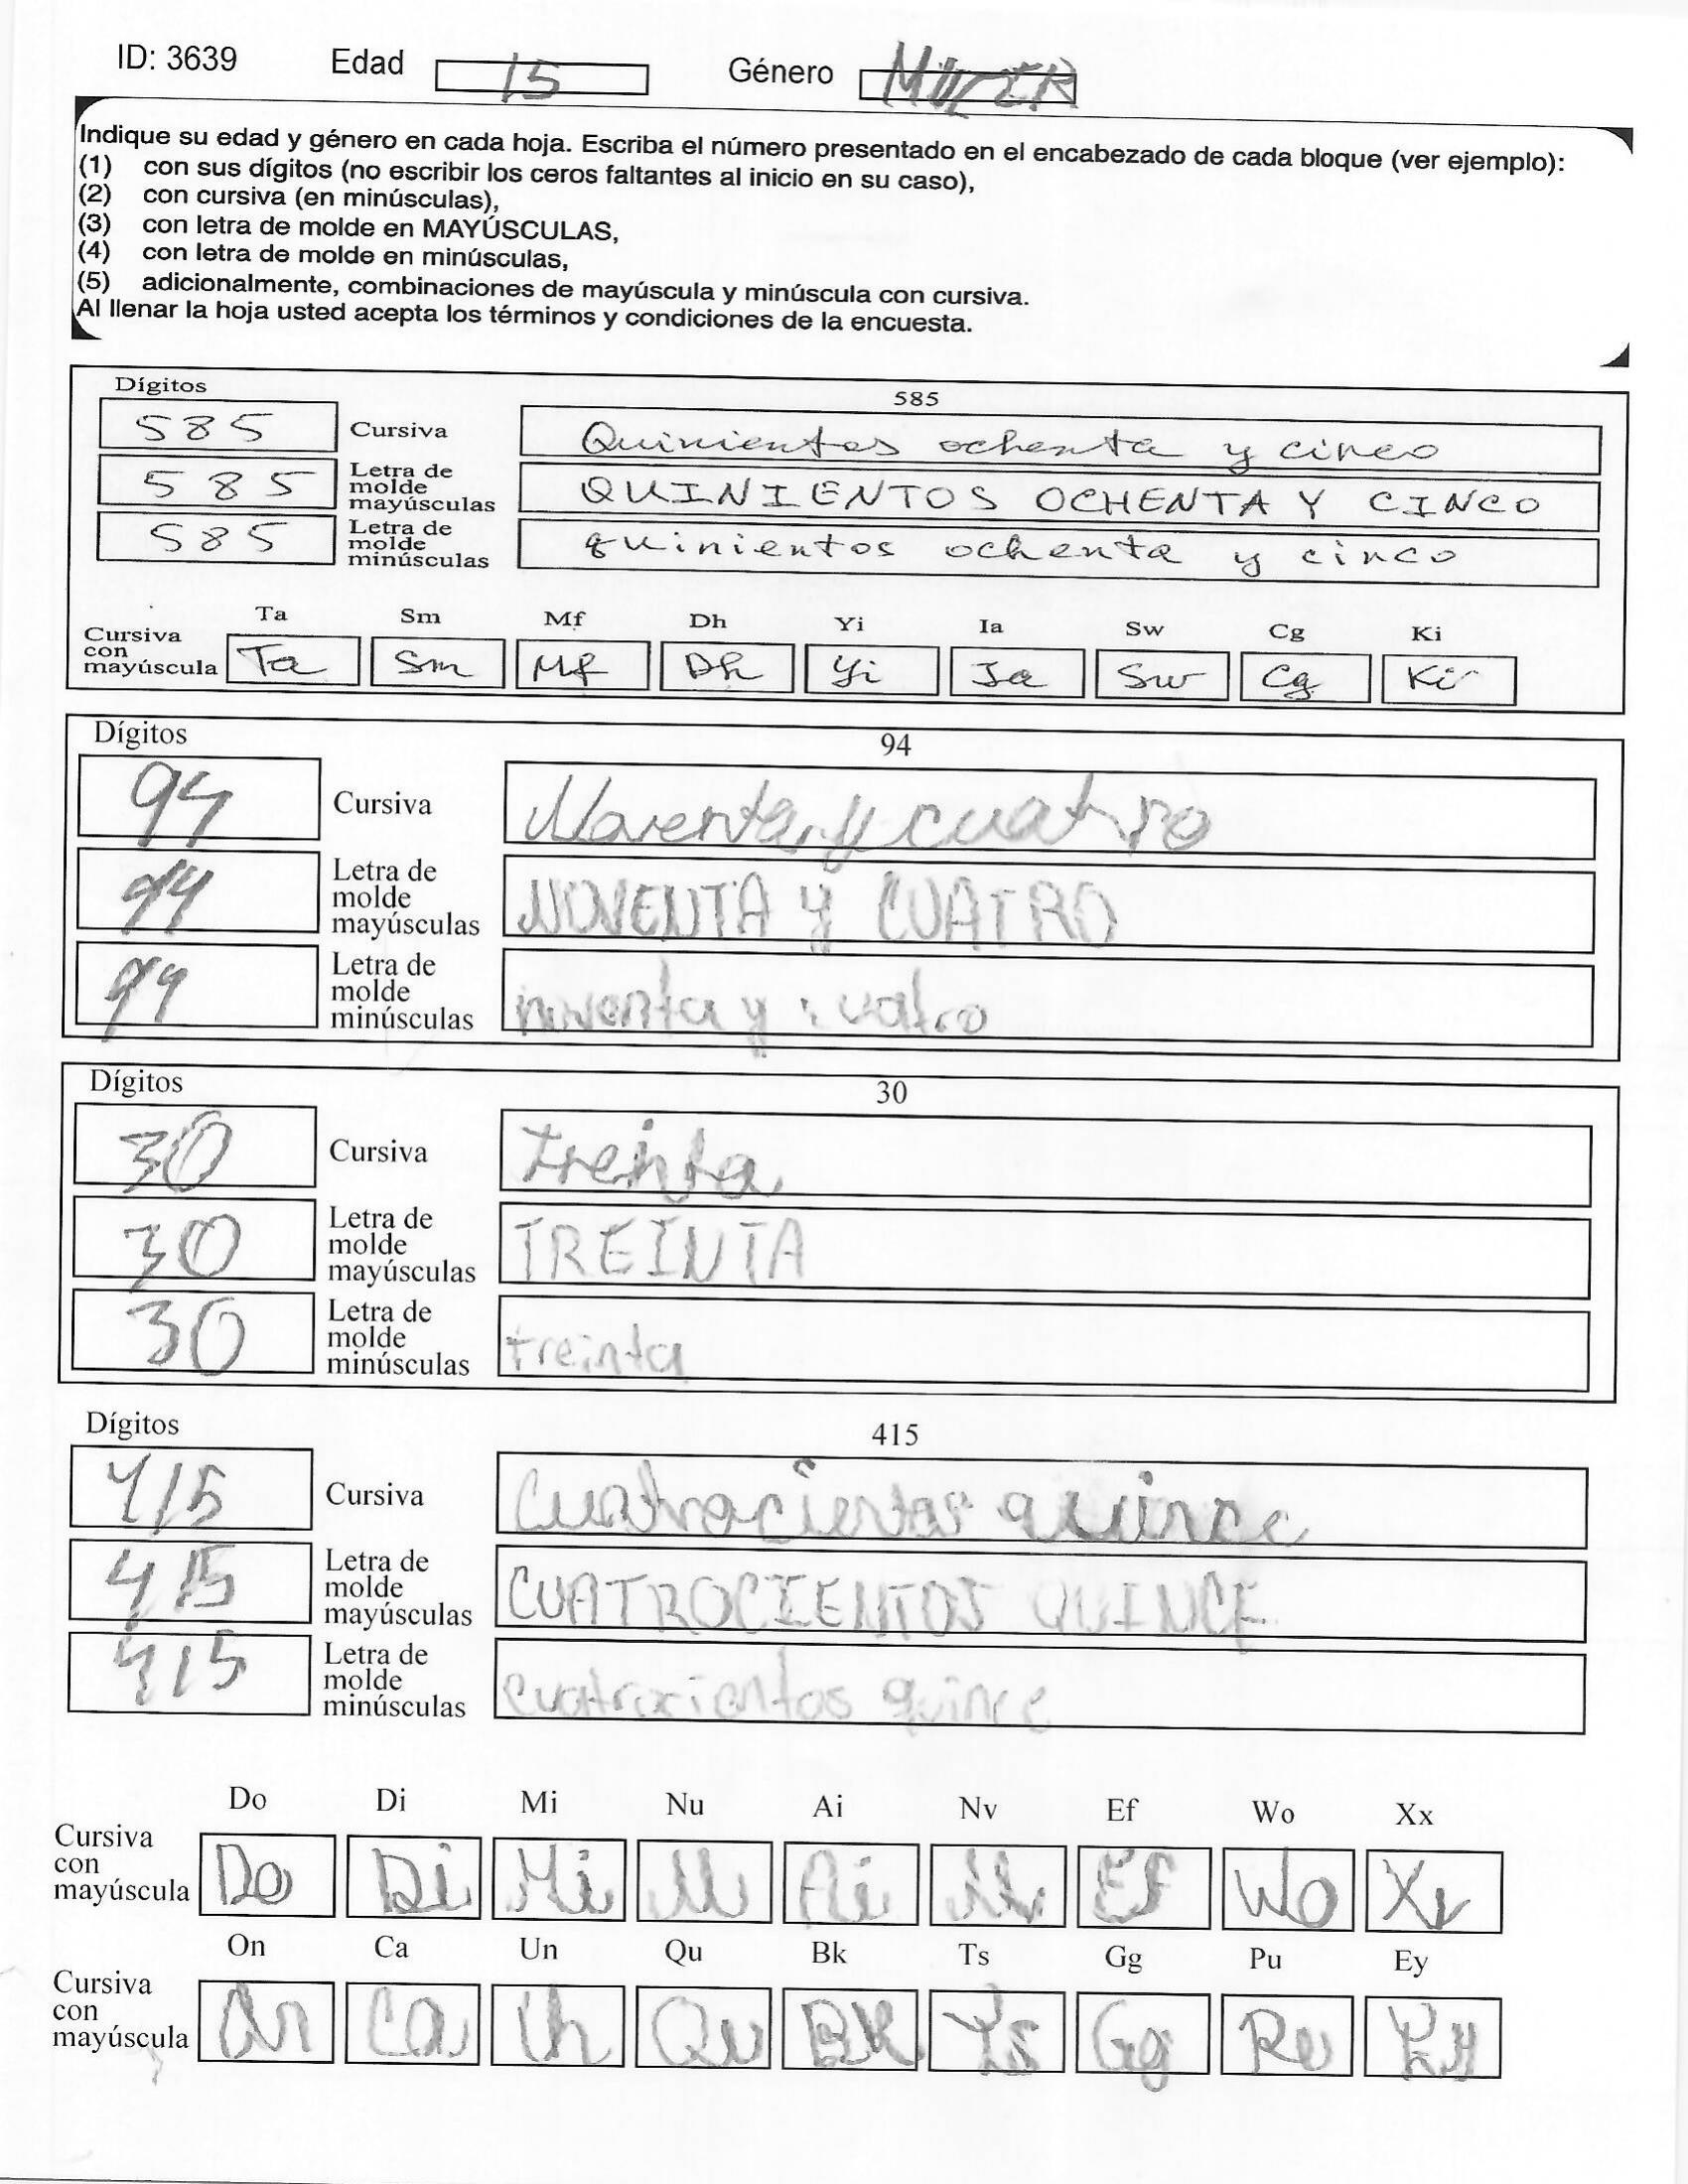 ID: 3639 Edad 15 Género MUJER
Indique su edad y género en cada hoja. Escriba el número presentado en el encabezado de cada bloque (ver ejemplo):
(1) con sus dígitos (no escribir los ceros faltantes al inicio en su caso),
(2) con cursiva (en minúsculas),
(3) con letra de molde en MAYÚSCULAS,
(4) con letra de molde en minúsculas,
(5) adicionalmente, combinaciones de mayúscula y minúscula con cursiva.
Al llenar la hoja usted acepta los términos y condiciones de la encuesta.
Dígitos 585
585 Cursiva Quinientos ochenta y cinco
585 Letra de molde mayúsculas QUINIENTOS OCHENTA Y CINCO
585 Letra de molde minúsculas quinientos ochenta y cinco
Ta Sm Mf Dh Yi Ia Sw Cg Ki
Cursiva con mayúscula Ta Sm Mf Dh Yi Ia Sw Cg Ki
Dígitos 94
94 Cursiva Noventa y cuatro
94 Letra de molde mayúsculas NOVENTA Y CUATRO
94 Letra de molde minúsculas noventa y cuatro
Dígitos 30
30 Cursiva treinta
30 Letra de molde mayúsculas TREINTA
30 Letra de molde minúsculas treinta
Dígitos 415
415 Cursiva Cuatrocientos quince
415 Letra de molde mayúsculas CUATROCIENTOS QUINCE
415 Letra de molde minúsculas cuatrocientos quince
Do Di Mi Nu Ai Nv Ef Wo Xx
Cursiva con mayúscula Do Di Mi Nu Ai Nv Ef Wo Xx
On Ca Un Qu Bk Ts Gg Pu Ey
Cursiva con mayúscula On Ca Un Qu Bk Ts Gg Pu Ey